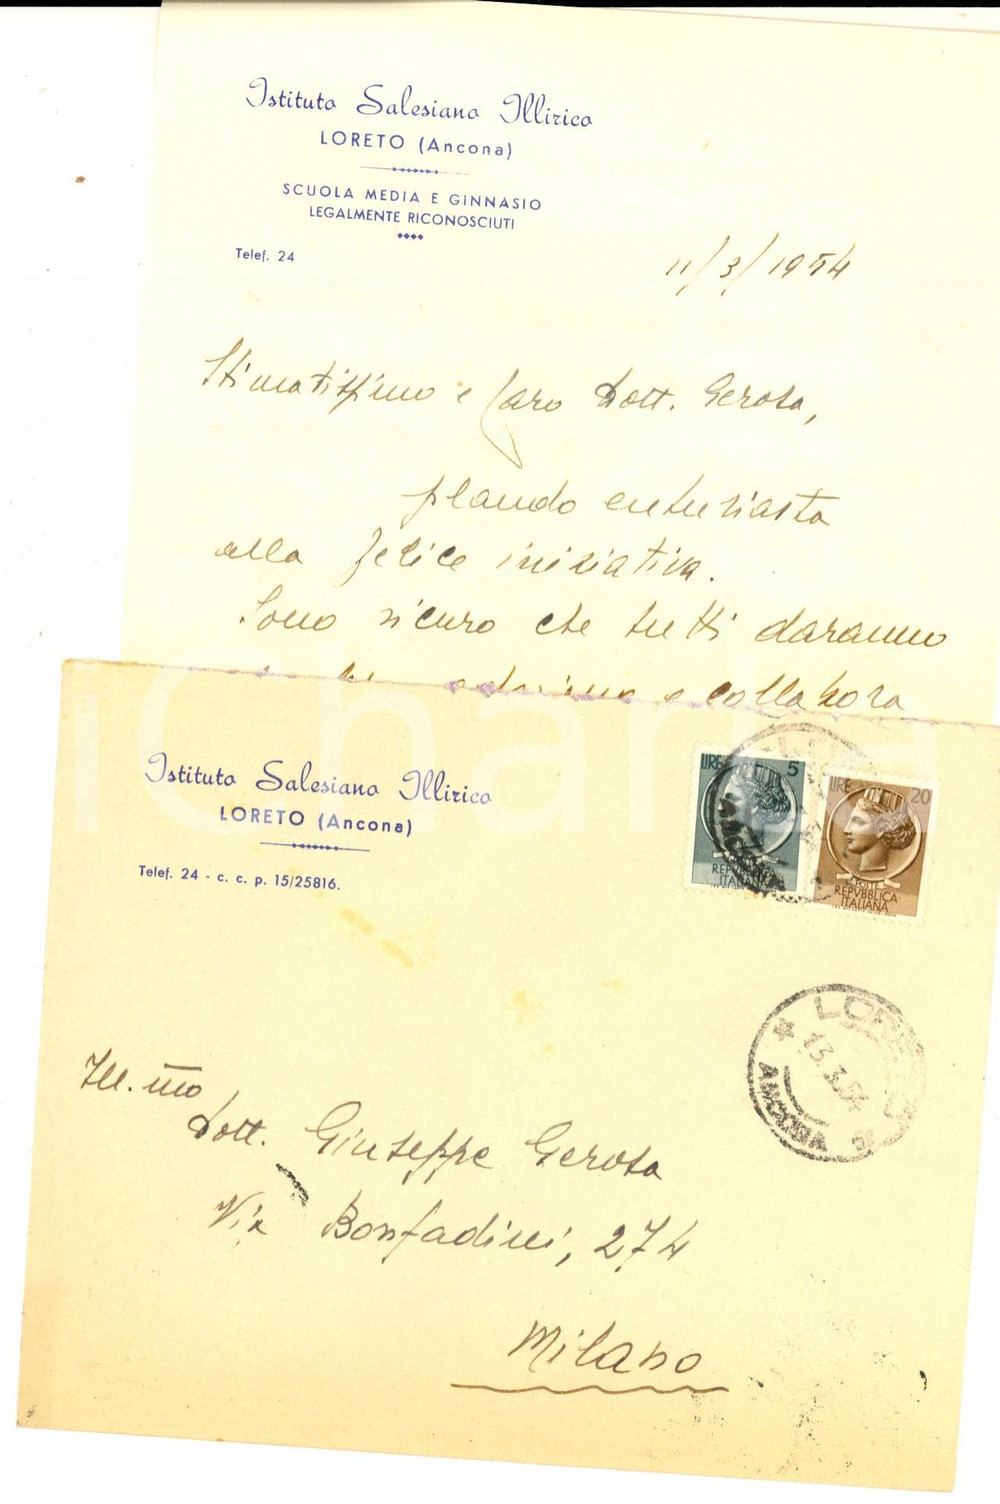 Istituto Salesiano Illirico
LORETO (Ancona)
SCUOLA MEDIA E GINNASIO
LEGALMENTE RICONOSCIUTI
Telef. 24
11/3/1954
Stimatissimo e Caro Dott. Gerosa,
plaudo entusiasta
alla felice iniziativa.
Sono sicuro che tutti daranno
e collabora
Istituto Salesiano Illirico
LORETO (Ancona)
Telef. 24 - c. c. p. 15/25816.
LIRE 5
REPVBBLICA
ITALIANA
LIRE 20
POSTE
REPVBBLICA
ITALIANA
LORETO
13.3.54
ANCONA
Ill.mo
Dott. Giuseppe Gerosa
Via Bonfadini, 274
Milano